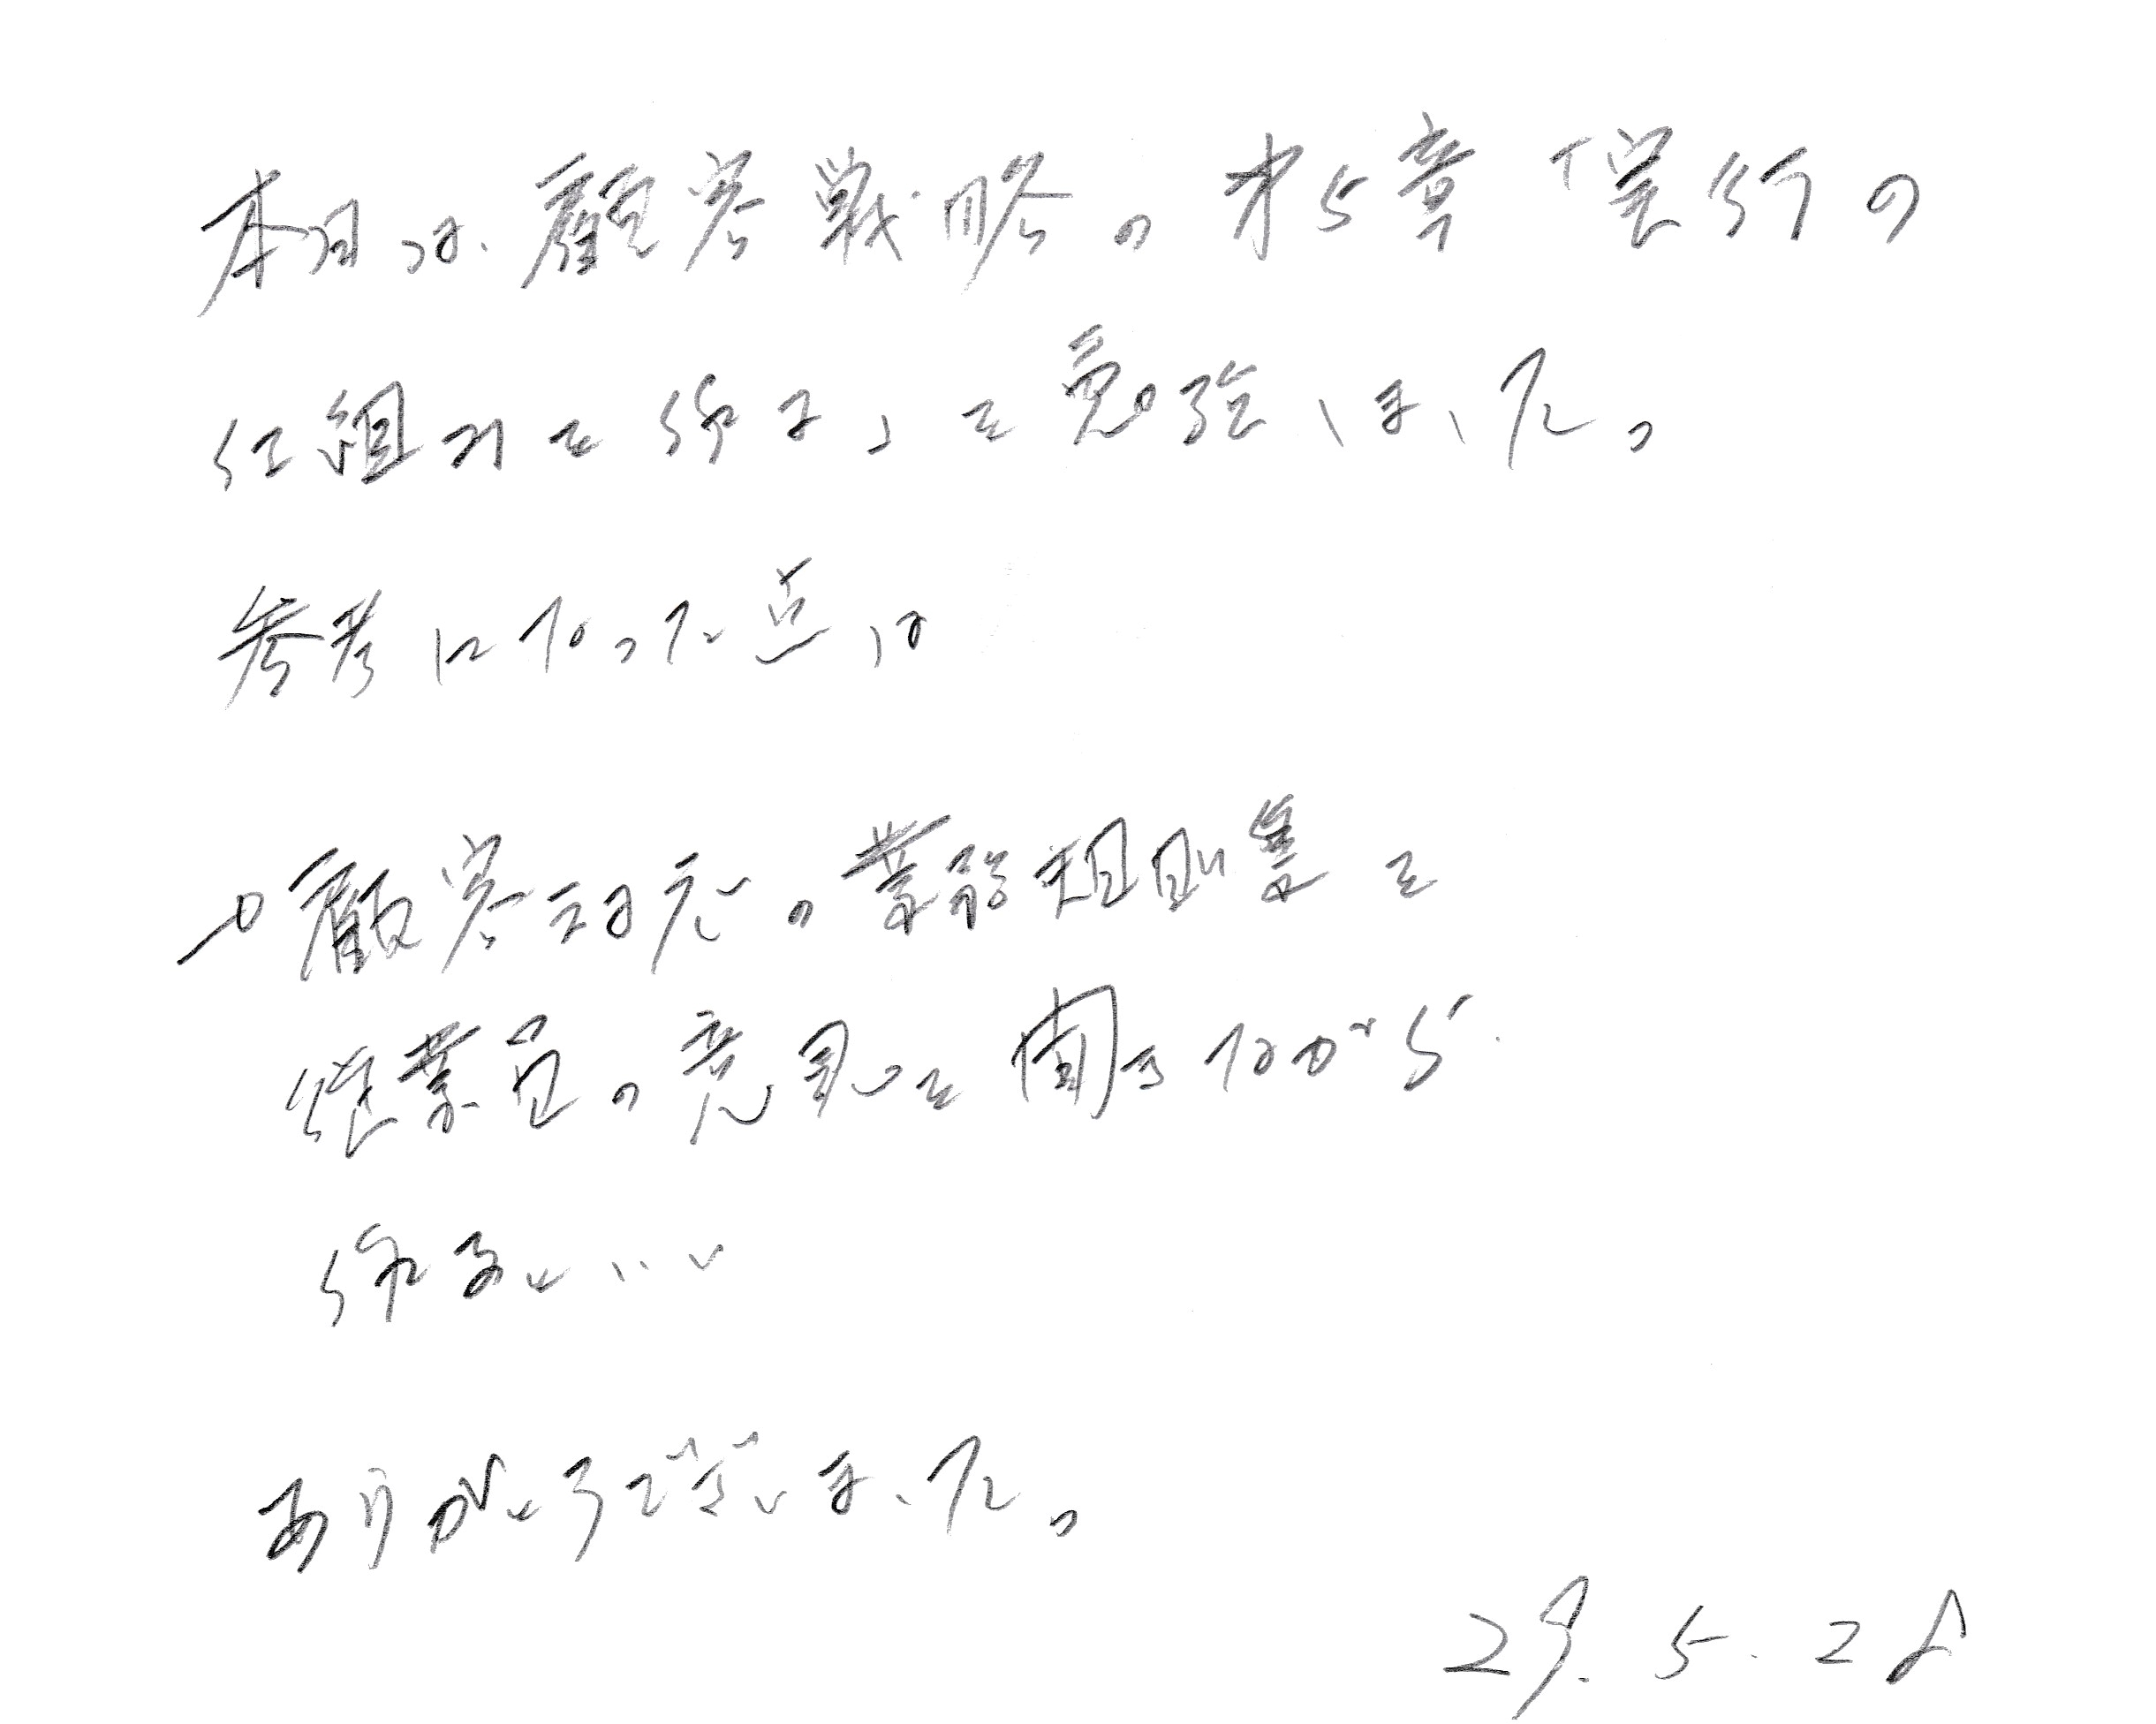 本日は、顧客戦略の才5章「実行の
仕組みを作る」を勉強しました。
参考になった点は
顧客対応の業務規則集を
従業員の意見を聞きながら
作ること
ありがとうございました。
29.5.28